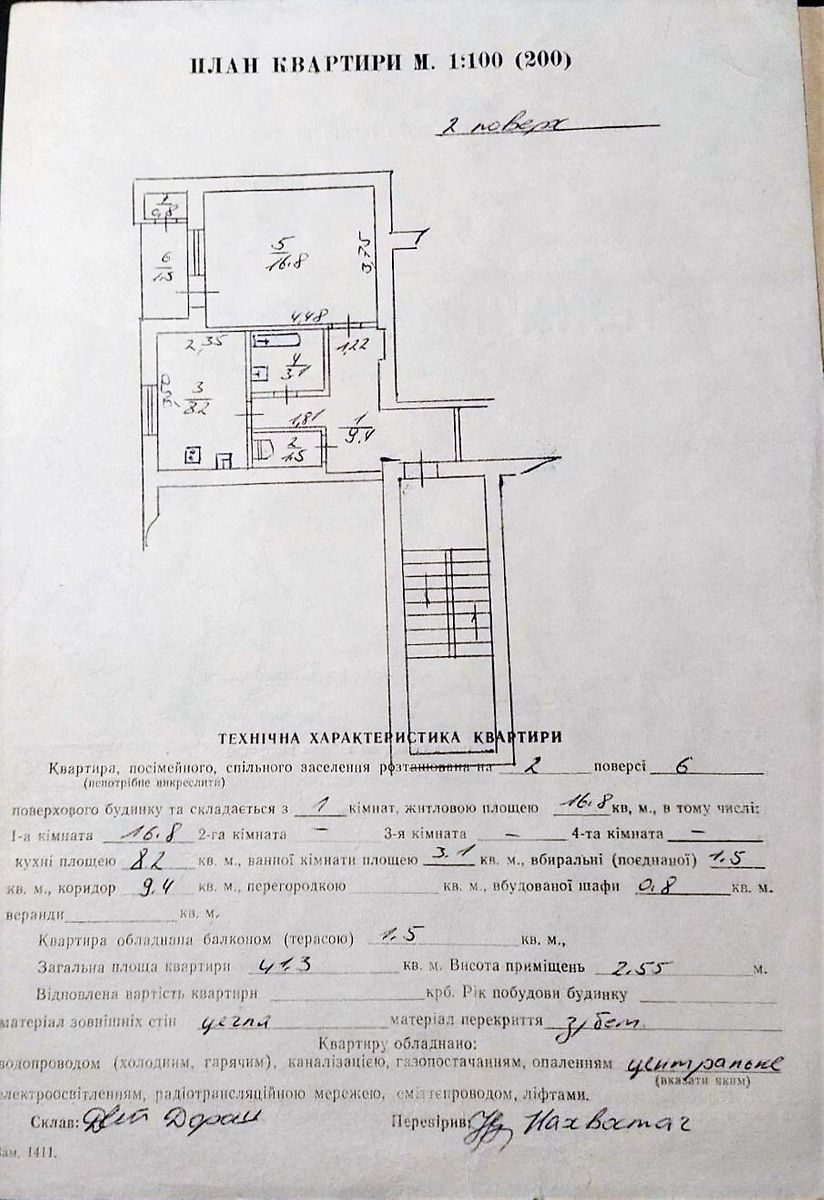 ПЛАН КВАРТИРИ М. 1:100 (200)
2 поверх
7
0.8
6
1.5
5
16.8
3,75
4,48
2,35
4
3.1
1,22
3,50
3
8.2
1,81
1
9.4
2
1.5
ТЕХНІЧНА ХАРАКТЕРИСТИКА КВАРТИРИ
Квартира, посімейного, спільного заселення розташована на 2 поверсі 6
(непотрібне викреслити)
поверхового будинку та складається з 1 кімнат, житловою площею 16.8 кв, м., в тому числі:
1-а кімната 16.8 2-га кімната – 3-я кімната – 4-та кімната –
кухні площею 8.2 кв. м., ванної кімнати площею 3.1 кв. м., вбиральні (поєднаної) 1.5
кв. м., коридор 9.4 кв. м., перегородкою кв. м., вбудованої шафи 0.8 кв. м.
веранди кв. м.
Квартира обладнана балконом (терасою) 1.5 кв. м.,
Загальна площа квартири 41.3 кв. м. Висота приміщень 2.55 м.
Відновлена вартість квартири крб. Рік побудови будинку
матеріал зовнішніх стін цегла матеріал перекриття з/бет.
Квартиру обладнано:
водопроводом (холодним, гарячим), каналізацією, газопостачанням, опаленням центральне
(вказати яким)
електроосвітленням, радіотрансляційною мережею, сміттєпроводом, ліфтами.
Склав: Перевірив:
Зам. 1411.